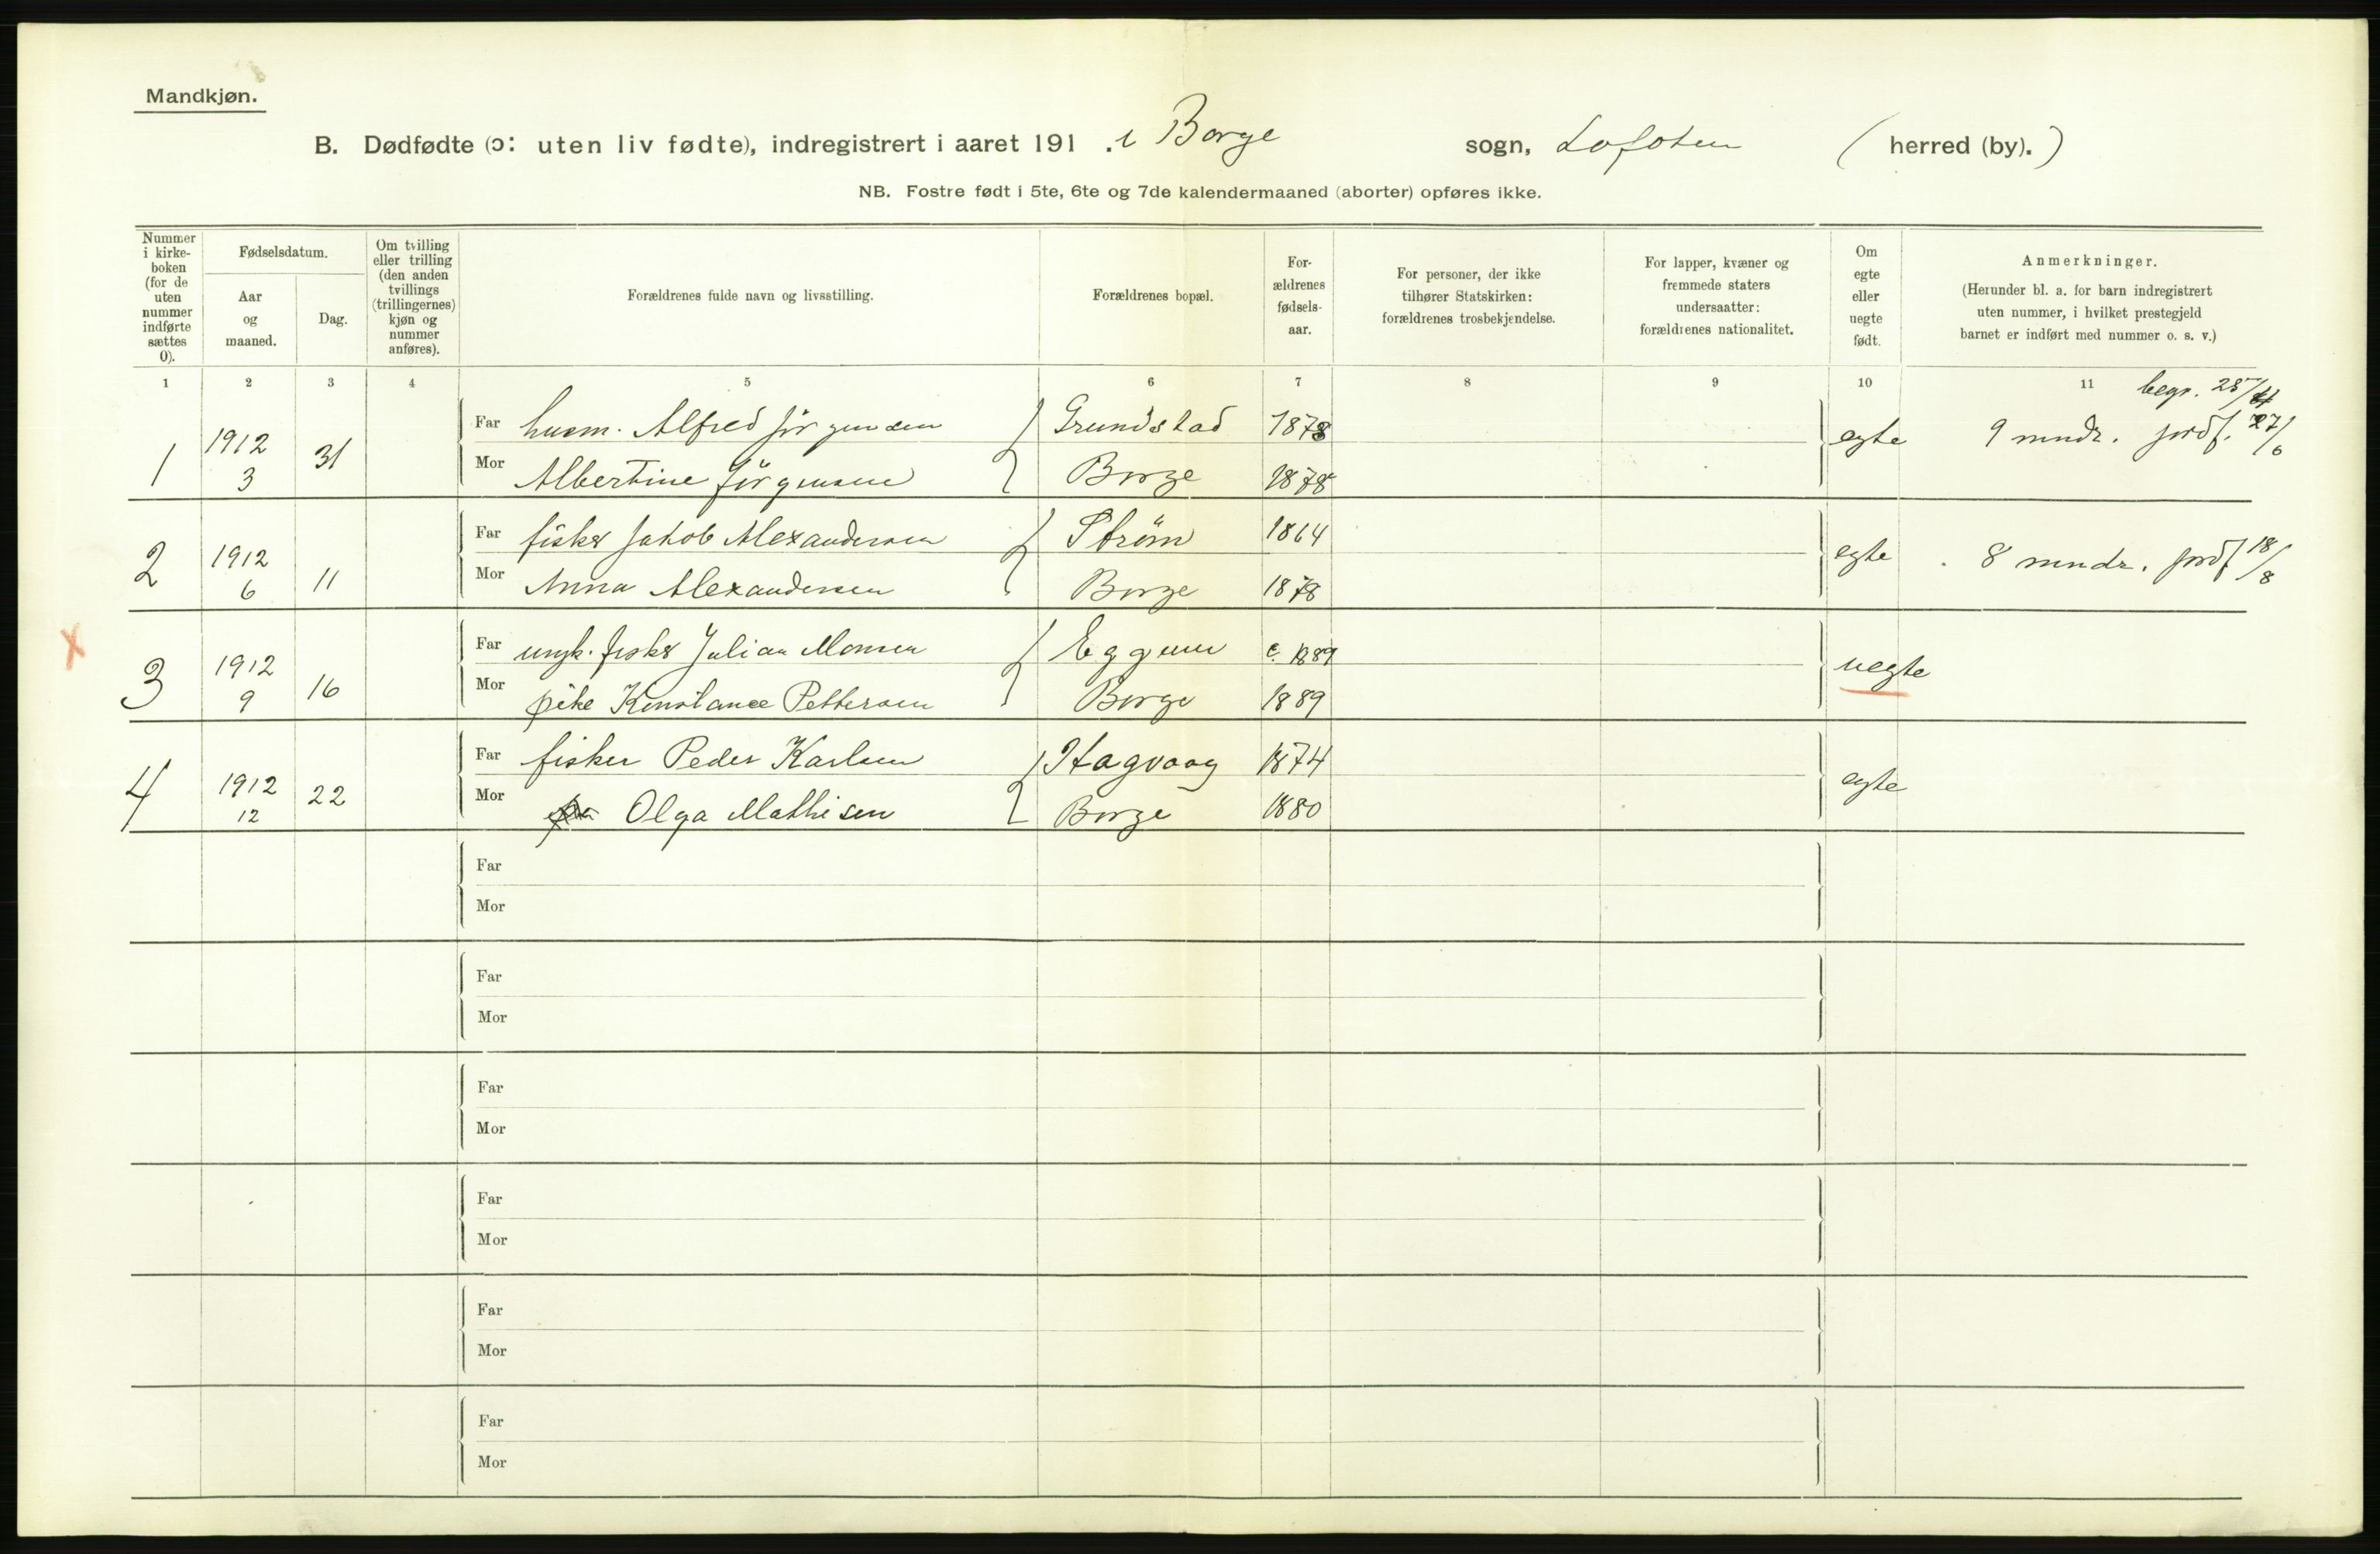 Mandkjøn.
B. Dødfødte (ɔ: uten liv fødte), indregistrert i aaret 191 . i Borge sogn, Lofoten ( herred (by). )
NB. Fostre født i 5te, 6te og 7de kalendermaaned (aborter) opføres ikke.
Nummer
i kirke-
boken
(for de
uten
nummer
indførte
sættes
0).
Fødselsdatum.
Aar
og
maaned.
Dag.
Om tvilling
eller trilling
(den anden
tvillings
(trillingernes)
kjøn og
nummer
anføres).
Forældrenes fulde navn og livsstilling.
Forældrenes bopæl.
For-
ældrenes
fødsels-
aar.
For personer, der ikke
tilhører Statskirken:
forældrenes trosbekjendelse.
For lapper, kvæner og
fremmede staters
undersaatter:
forældrenes nationalitet.
Om
egte
eller
uegte
født.
Anmerkninger.
(Herunder bl. a. for barn indregistrert
uten nummer, i hvilket prestegjeld
barnet er indført med nummer o. s. v.)
1 2 3 4 5 6 7 8 9 10 11
begr. 28/4
1 1912 3 31 Far husm. Alfred Jörgensen Grundstad 1878 egte 9 mndr. jordf. 27/6
Mor Albertine Jörgensen Borge 1878
2 1912 6 11 Far fisker Jakob Alexandersen Ström 1864 egte 8 mndr. jordf 18/8
Mor Anna Alexandersen Borge 1878
X
3 1912 9 16 Far ungk. fisker Julian Monsen Eggum c. 1889 uegte
Mor pike Konstance Pettersen Borge 1889
4 1912 12 22 Far fisker Peder Karlsen Hagvaag 1874 egte
Mor Olga Mathisen Borge 1880
Far
Mor
Far
Mor
Far
Mor
Far
Mor
Far
Mor
Far
Mor